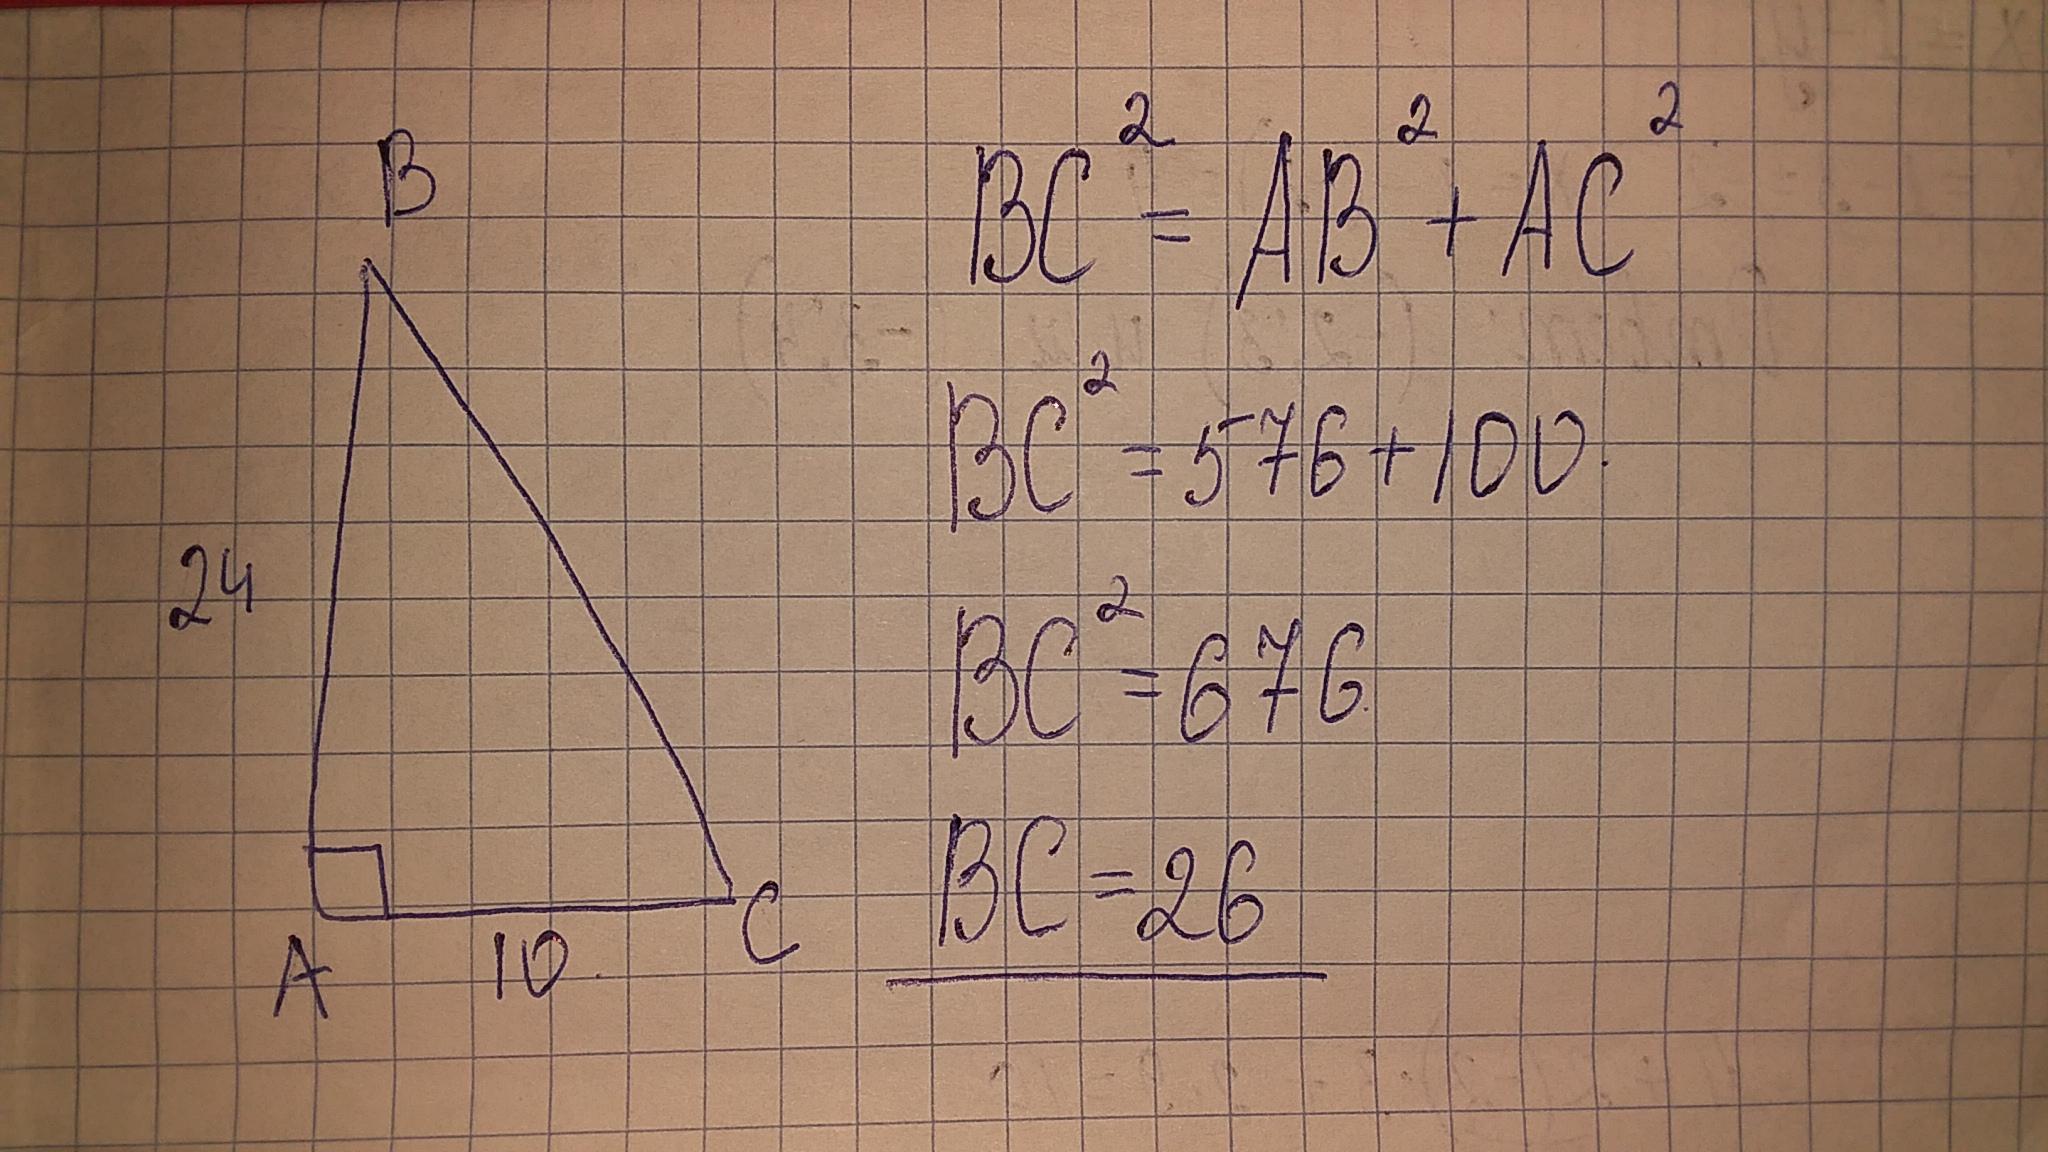 B
24
A
10
C
BC² = AB² + AC²
BC² = 576 + 100.
BC² = 676.
BC = 26